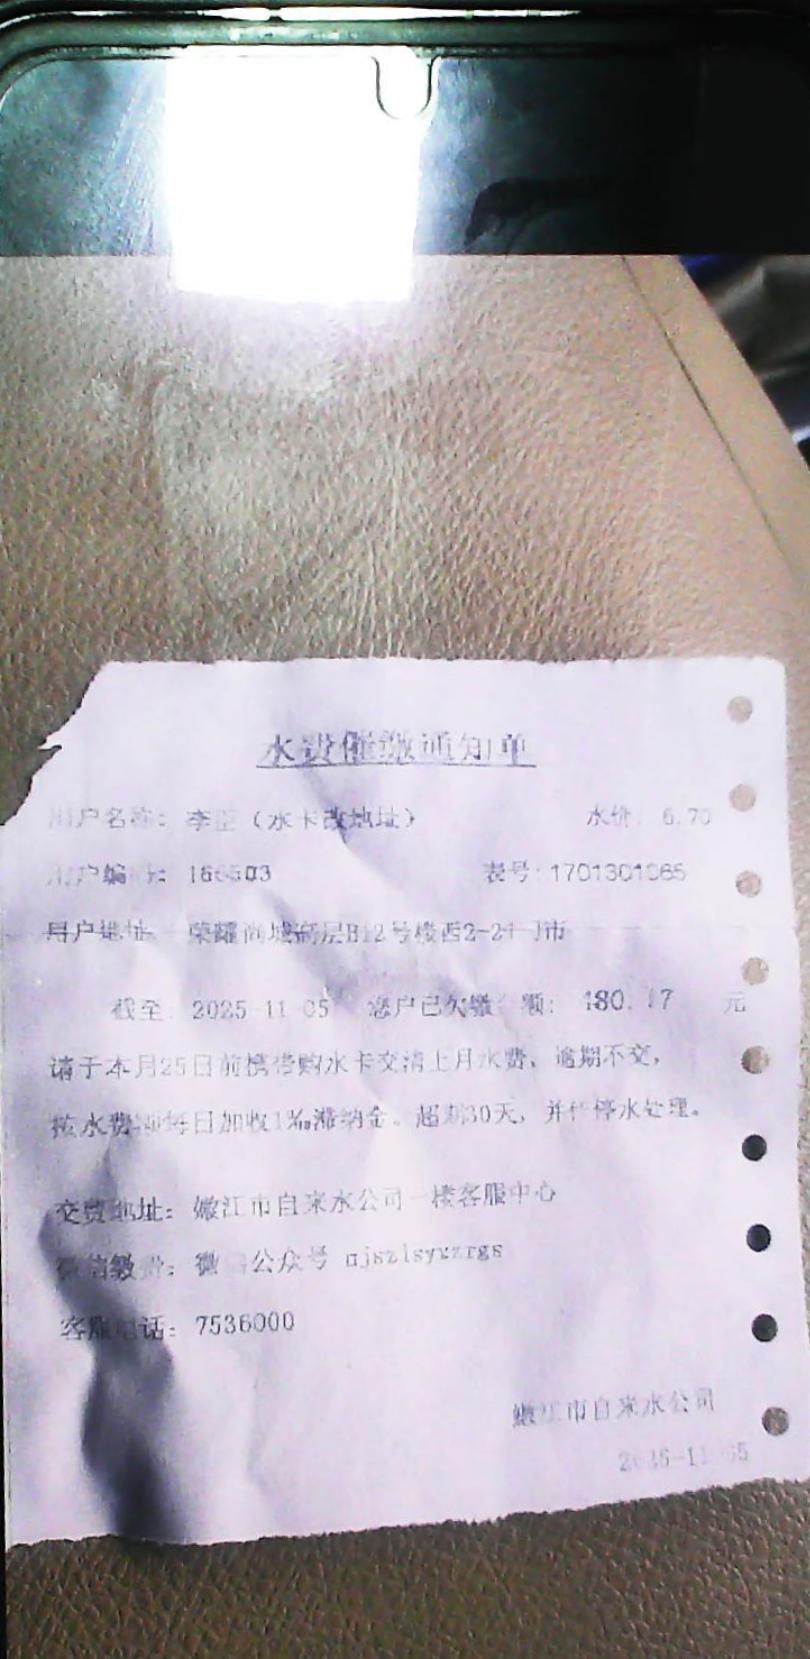 水费催缴通知单
用户名称：李 （水卡改地址） 水价：6.70
用户编码： 表号：1701301065
用户地址 荣耀尚城高层B12号楼西
截至：2025-11-05 您户已欠缴 额： 元
请于本月25日前携带购水卡交清上月水费、逾期不交，
按水费额每日加收1‰滞纳金。超期30天，并 停水处理。
交费地址：嫩江市自来水公司一楼客服中心
微信缴费：微信公众号
客服电话：7536000
嫩江市自来水公司
2025-11-05